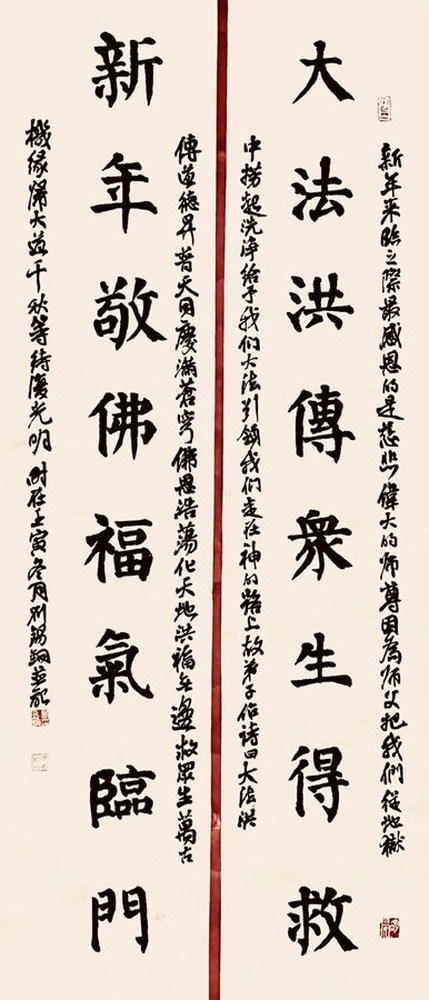 新年来臨之際最感恩的是慈悲偉大的师尊因為师父把我們從地獄
大法洪傳衆生得救
中撈起洗净给予我们大法引領我们走在神的路上故弟子作詩曰大法洪
傳道德昇普天同慶滿蒼穹佛恩浩蕩化天地洪福無邊救眾生萬古
新年敬佛福氣臨門
機緣歸大道千秋等待復光明时在壬寅冬月刘錫銅並記